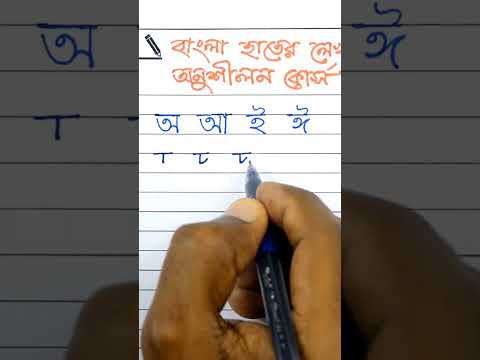 বাংলা হাতের লেখ
অনুশীলন কোর্স
অ আ ই ঈ